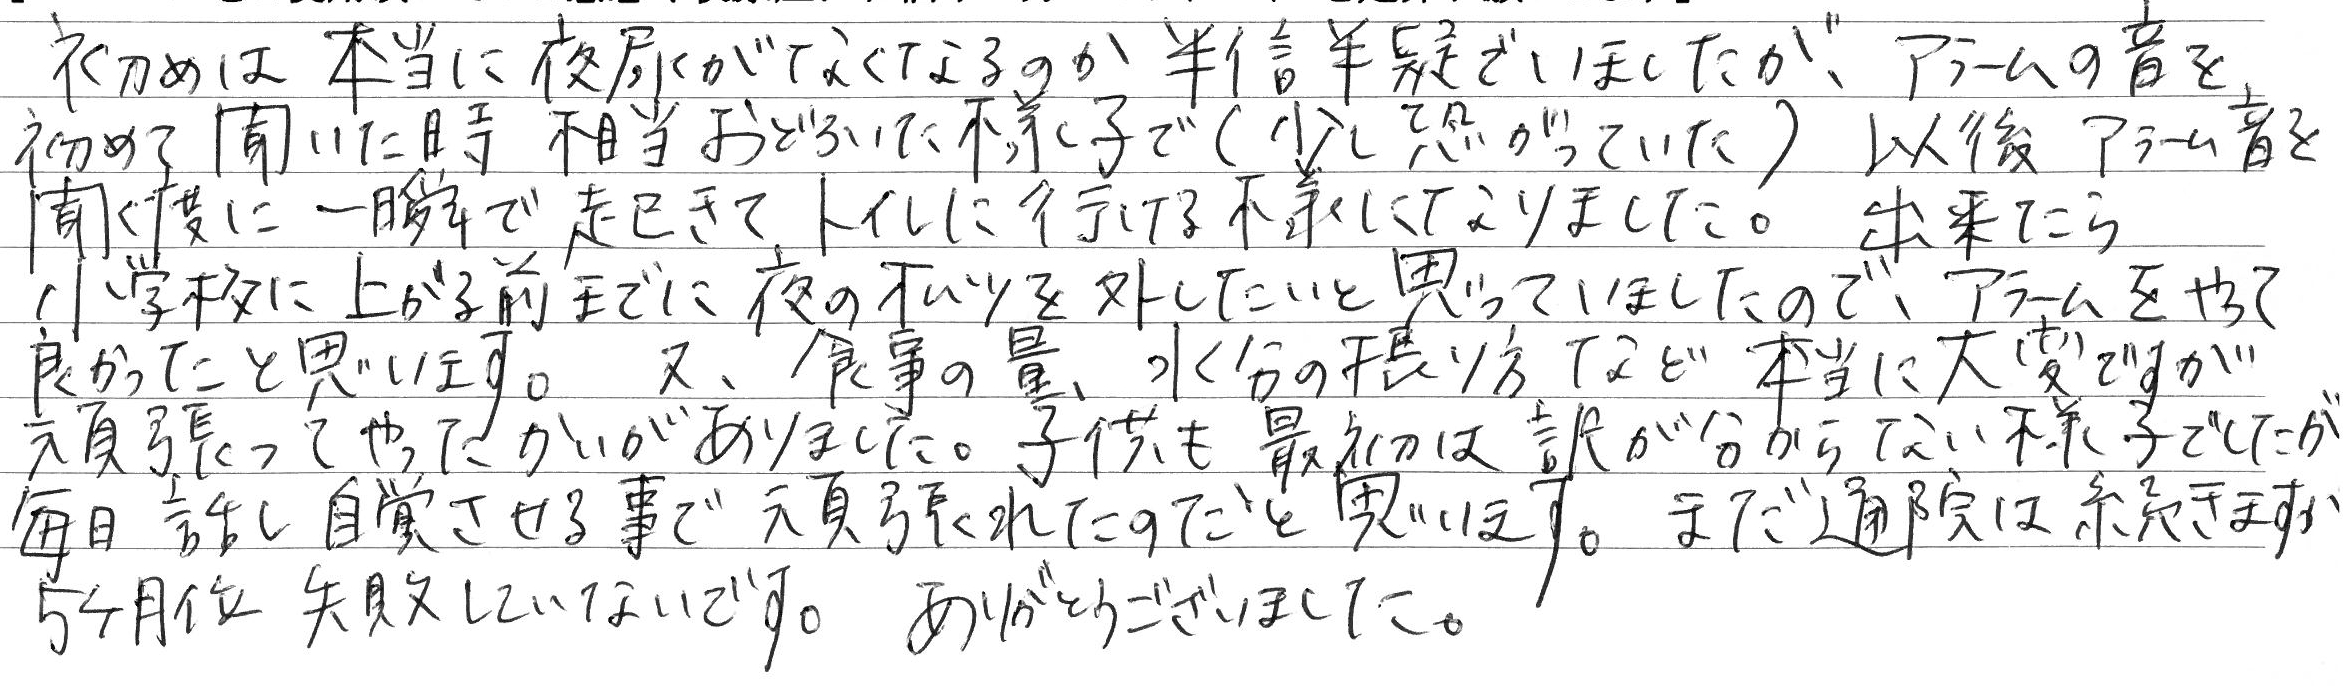 初めは 本当に 夜尿がなくなるのか 半信半疑でいましたが、アラームの音を
初めて 聞いた時 相当 おどろいた様子で(少し恐がっていた) 以後 アラーム音を
聞く度に 一瞬で 起きて トイレに 行ける様になりました。 出来たら
小学校に 上がる前までに 夜の オムツを 外したいと 思っていましたので、アラームをやって
良かったと思います。 又、食事の量、水分の摂り方など 本当に大変ですが
頑張って やったかいが ありました。子供も 最初は 訳が分からない様子でしたが
毎日 話し 自覚させる事で 頑張れたのだと思います。 まだ通院は続きますが
5ケ月位 失敗していないです。 ありがとうございました。